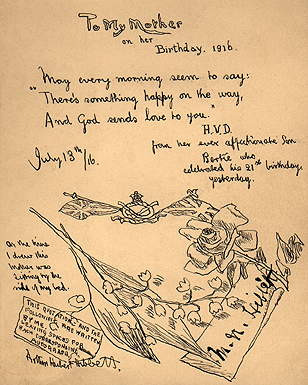 To My Mother
on her
Birthday, 1916.
"May every morning seem to say:
There's something happy on the way,
And God sends love to you."
H.V.D.
from her ever affectionate Son
Bertie who
celebrated his 21st birthday,
yesterday.
July 13th/16.
At the time
I drew this
Mother was
sitting by the
side of my bed.
This first page and the
following are written
by me
having joined for
Arthur Hubert
M. N. Wright